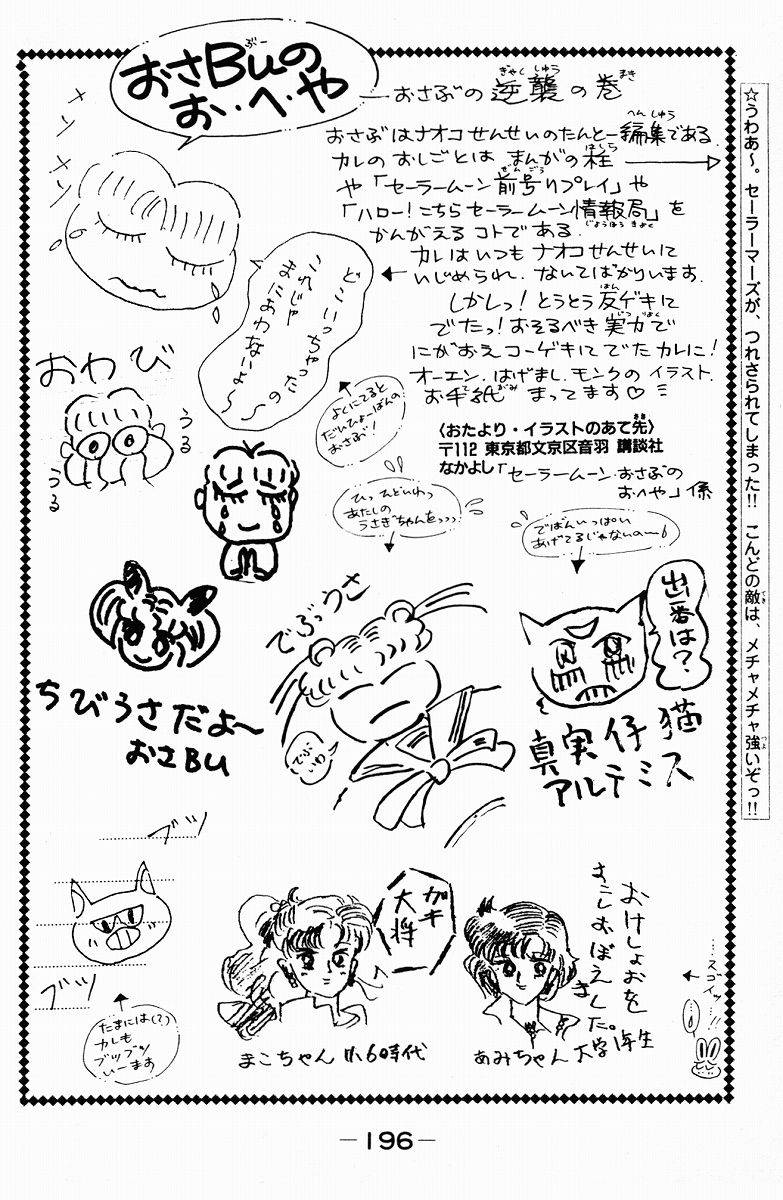 おさBuの
ぶー
お・へ・や
―おさぶの逆襲の巻
ぎゃくしゅう
まき
おさぶはナオコせんせいのたんとー編集である.
へんしゅう
カレのおしごとは まんがの柱
はしら
や「セーラームーン前号リプレイ」や
ぜんごう
「ハロー!こちらセーラームーン情報局」を
じょうほうきょく
かんがえるコトである.
カレはいつもナオコせんせいに
いじめられ、ないてばかりいます.
しかしっ!とうとう反ゲキに
はん
でたっ!おそるべき実力で
じつりょく
にがおえコーゲキにでたカレに!
オーエン、はげまし、モンクのイラスト、
お手紙 まってます♡
てがみ
〈おたより・イラストのあて先〉
さき
〒112 東京都文京区音羽 講談社
なかよし「セーラームーン・おさぶの
おへや」係
☆うわあ〜。セーラーマーズが、つれさられてしまった!! こんどの敵は、メチャメチャ強いぞっ!!
てき
つよ
メソメソ
どこいっちゃったの
これじゃ
まにあわないよ〜〜
おわび
うる
うる
よくにてると
だいひょーばんの
おさぶ!
ひっ、ひどいわっ
あたしの
うさぎちゃんをっっっ
でばんいっぱい
あげてるじゃないの―6
でぶっうさ
でぶいわ
出番は?
真実仔猫
アルテミス
ちびうさだよ〜
おさBU
ブツ
ブツ
たまには(?)
カレも
ブツブツ
いーます
ガキ
大将
まこちゃん 小6時代
おけしょおを
すこしおぼえ
ました。
あみちゃん 大学1年生
……スゴイッ!!
―196―